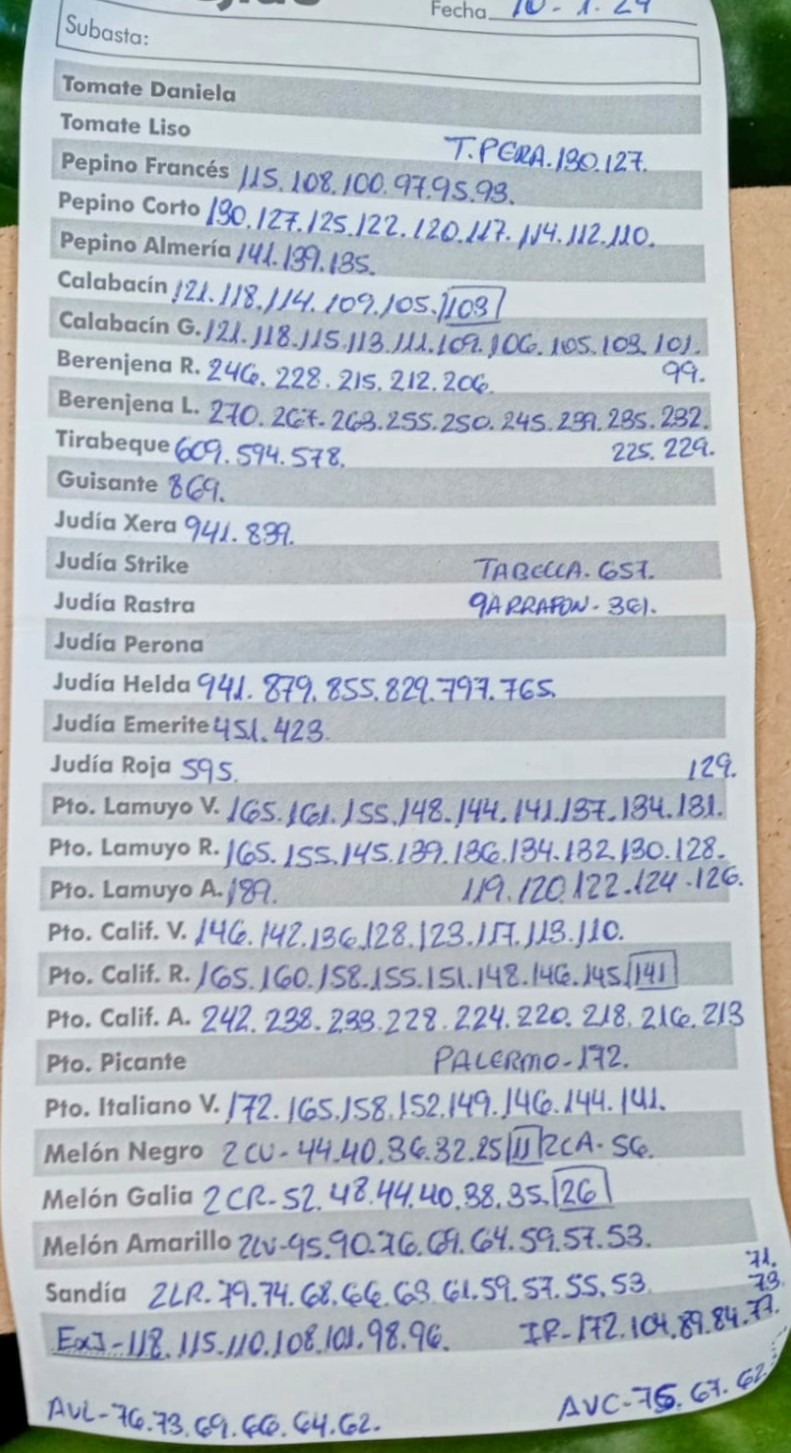 Fecha 10-1.24
Subasta:
Tomate Daniela
Tomate Liso
T.PERA.130.127.
Pepino Francés 115.108.100.97.95.93.
Pepino Corto 130.127.125.122.120.117.114.112.110.
Pepino Almería 141.139.135.
Calabacín 121.118.114.109.105.103
Calabacín G. 121.118.115.113.111.109.106.105.103.101.
99.
Berenjena R. 246.228.215.212.206.
Berenjena L. 270.267.263.255.250.245.239.235.232.
225.229.
Tirabeque 609.594.578.
Guisante 869.
Judía Xera 941.839.
Judía Strike
TABELLA.657.
Judía Rastra
GARRAFON-361.
Judía Perona
Judía Helda 941.879.855.829.797.765.
Judía Emerite 451.423.
Judía Roja 595.
129.
Pto. Lamuyo V. 165.161.155.148.144.141.137.134.131.
Pto. Lamuyo R. 165.155.145.139.136.134.132.130.128.
Pto. Lamuyo A. 189.
119.120.122.124.126.
Pto. Calif. V. 146.142.136.128.123.117.113.110.
Pto. Calif. R. 165.160.158.155.151.148.146.145.141
Pto. Calif. A. 242.238.233.228.224.220.218.216.213
Pto. Picante
PALERMO-172.
Pto. Italiano V. 172.165.158.152.149.146.144.141.
Melón Negro 2CU-44.40.36.32.25 11 2CA-56.
Melón Galia 2CR-52.48.44.40.38.35.26
Melón Amarillo 2LV-95.90.76.69.64.59.57.53.
Sandía 2LR-79.74.68.66.63.61.59.57.55.53.
71.
73.
ExJ-118.115.110.108.101.98.96.
IR-172.104.89.84.77.
AVL-76.73.69.66.64.62.
AVC-75.67.62.